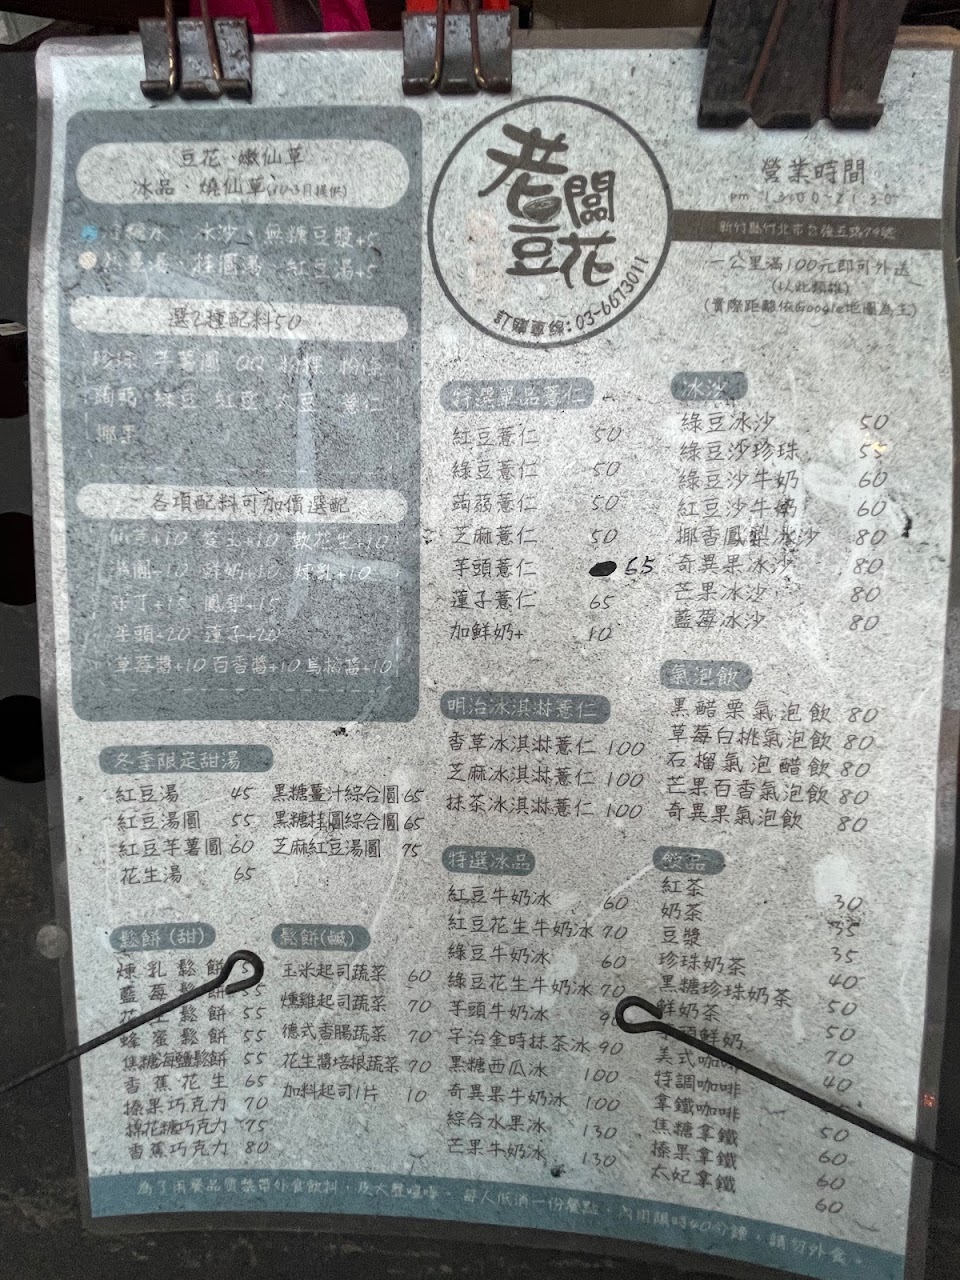 豆花、嫩仙草
冰品、燒仙草(10-3月提供)
冰沙、無糖豆漿+5
桂圓湯、紅豆湯+5
選2種配料50
珍珠 芋薯圓 QQ 粉粿 粉條
蒟蒻 綠豆 紅豆 大豆 薏仁
椰果
各項配料可加價選配
仙草+10 芋圓+10 軟花生+10
湯圓+10 鮮奶+10 煉乳+10
布丁+15 鳳梨+15
芋頭+20 蓮子+20
草莓醬+10 百香醬+10 烏梅醬+10
冬季限定甜湯
紅豆湯 45
紅豆湯圓 55
紅豆芋薯圓 60
花生湯 65
黑糖薑汁綜合圓 65
黑糖桂圓綜合圓 65
芝麻紅豆湯圓 75
鬆餅(甜)
煉乳鬆餅
藍莓鬆餅 55
鬆餅 55
蜂蜜鬆餅 55
焦糖海鹽鬆餅 55
香蕉花生 65
榛果巧克力 70
棉花糖巧克力 75
香蕉巧克力 80
鬆餅(鹹)
玉米起司蔬菜 60
燻雞起司蔬菜 70
德式香腸蔬菜 70
花生醬培根蔬菜 70
加料起司1片 10
老闆豆花
訂購專線:03-6673011
特選單品薏仁
紅豆薏仁 50
綠豆薏仁 50
蒟蒻薏仁 50
芝麻薏仁 50
芋頭薏仁 65
蓮子薏仁 65
加鮮奶+ 10
明治冰淇淋薏仁
香草冰淇淋薏仁 100
芝麻冰淇淋薏仁 100
抹茶冰淇淋薏仁 100
特選冰品
紅豆牛奶冰 60
紅豆花生牛奶冰 70
綠豆牛奶冰 60
綠豆花生牛奶冰 70
芋頭牛奶冰
宇治金時抹茶冰 90
黑糖西瓜冰 100
奇異果牛奶冰 100
綜合水果冰 130
芒果牛奶冰 130
營業時間
pm 13:00~21:30
新竹縣竹北市自強五路79號
一公里滿100元即可外送
(以此類推)
(實際距離依Google地圖為主)
冰沙
綠豆冰沙 50
綠豆沙珍珠 55
綠豆沙牛奶 60
紅豆沙牛奶 60
椰香鳳梨冰沙 80
奇異果冰沙 80
芒果冰沙 80
藍莓冰沙 80
氣泡飲
黑醋栗氣泡飲 80
草莓白桃氣泡飲 80
石榴氣泡醋飲 80
芒果百香氣泡飲 80
奇異果氣泡飲 80
飲品
紅茶 30
奶茶 35
豆漿 35
珍珠奶茶 40
黑糖珍珠奶茶 50
鮮奶茶 50
芋頭鮮奶 70
美式咖啡 40
特調咖啡
拿鐵咖啡 50
焦糖拿鐵 60
榛果拿鐵 60
太妃拿鐵 60
為了用餐品質禁帶外食飲料,及大聲喧嘩。每人低消一份餐點,內用限時40分鐘,請勿外食。